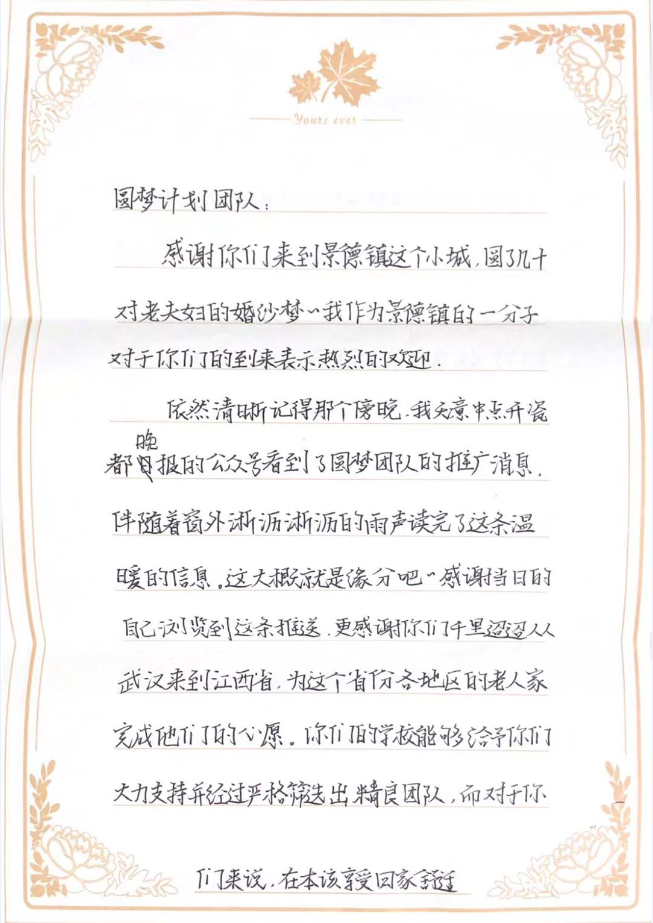 Yours ever
圆梦计划团队：
感谢你们来到景德镇这个小城，圆了几十
对老夫妇的婚纱梦~我作为景德镇的一分子
对于你们的到来表示热烈的欢迎.
依然清晰记得那个傍晚，我无意中点开瓷
都晚报的公众号看到了圆梦团队的推广消息，
伴随着窗外淅沥淅沥的雨声读完了这条温
暖的信息。这大概就是缘分吧~感谢当日的
自己浏览到这条推送，更感谢你们千里迢迢从
武汉来到江西省，为这个省份各地区的老人家
完成他们的心愿。你们的学校能够给予你们
大力支持并经过严格筛选出精良团队，而对于你
们来说，在本该享受回家舒适